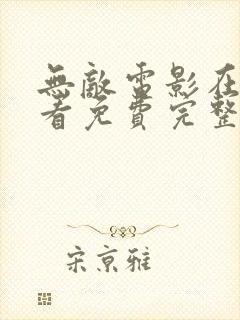 無敵雷影在
看免費完整
宋京雅